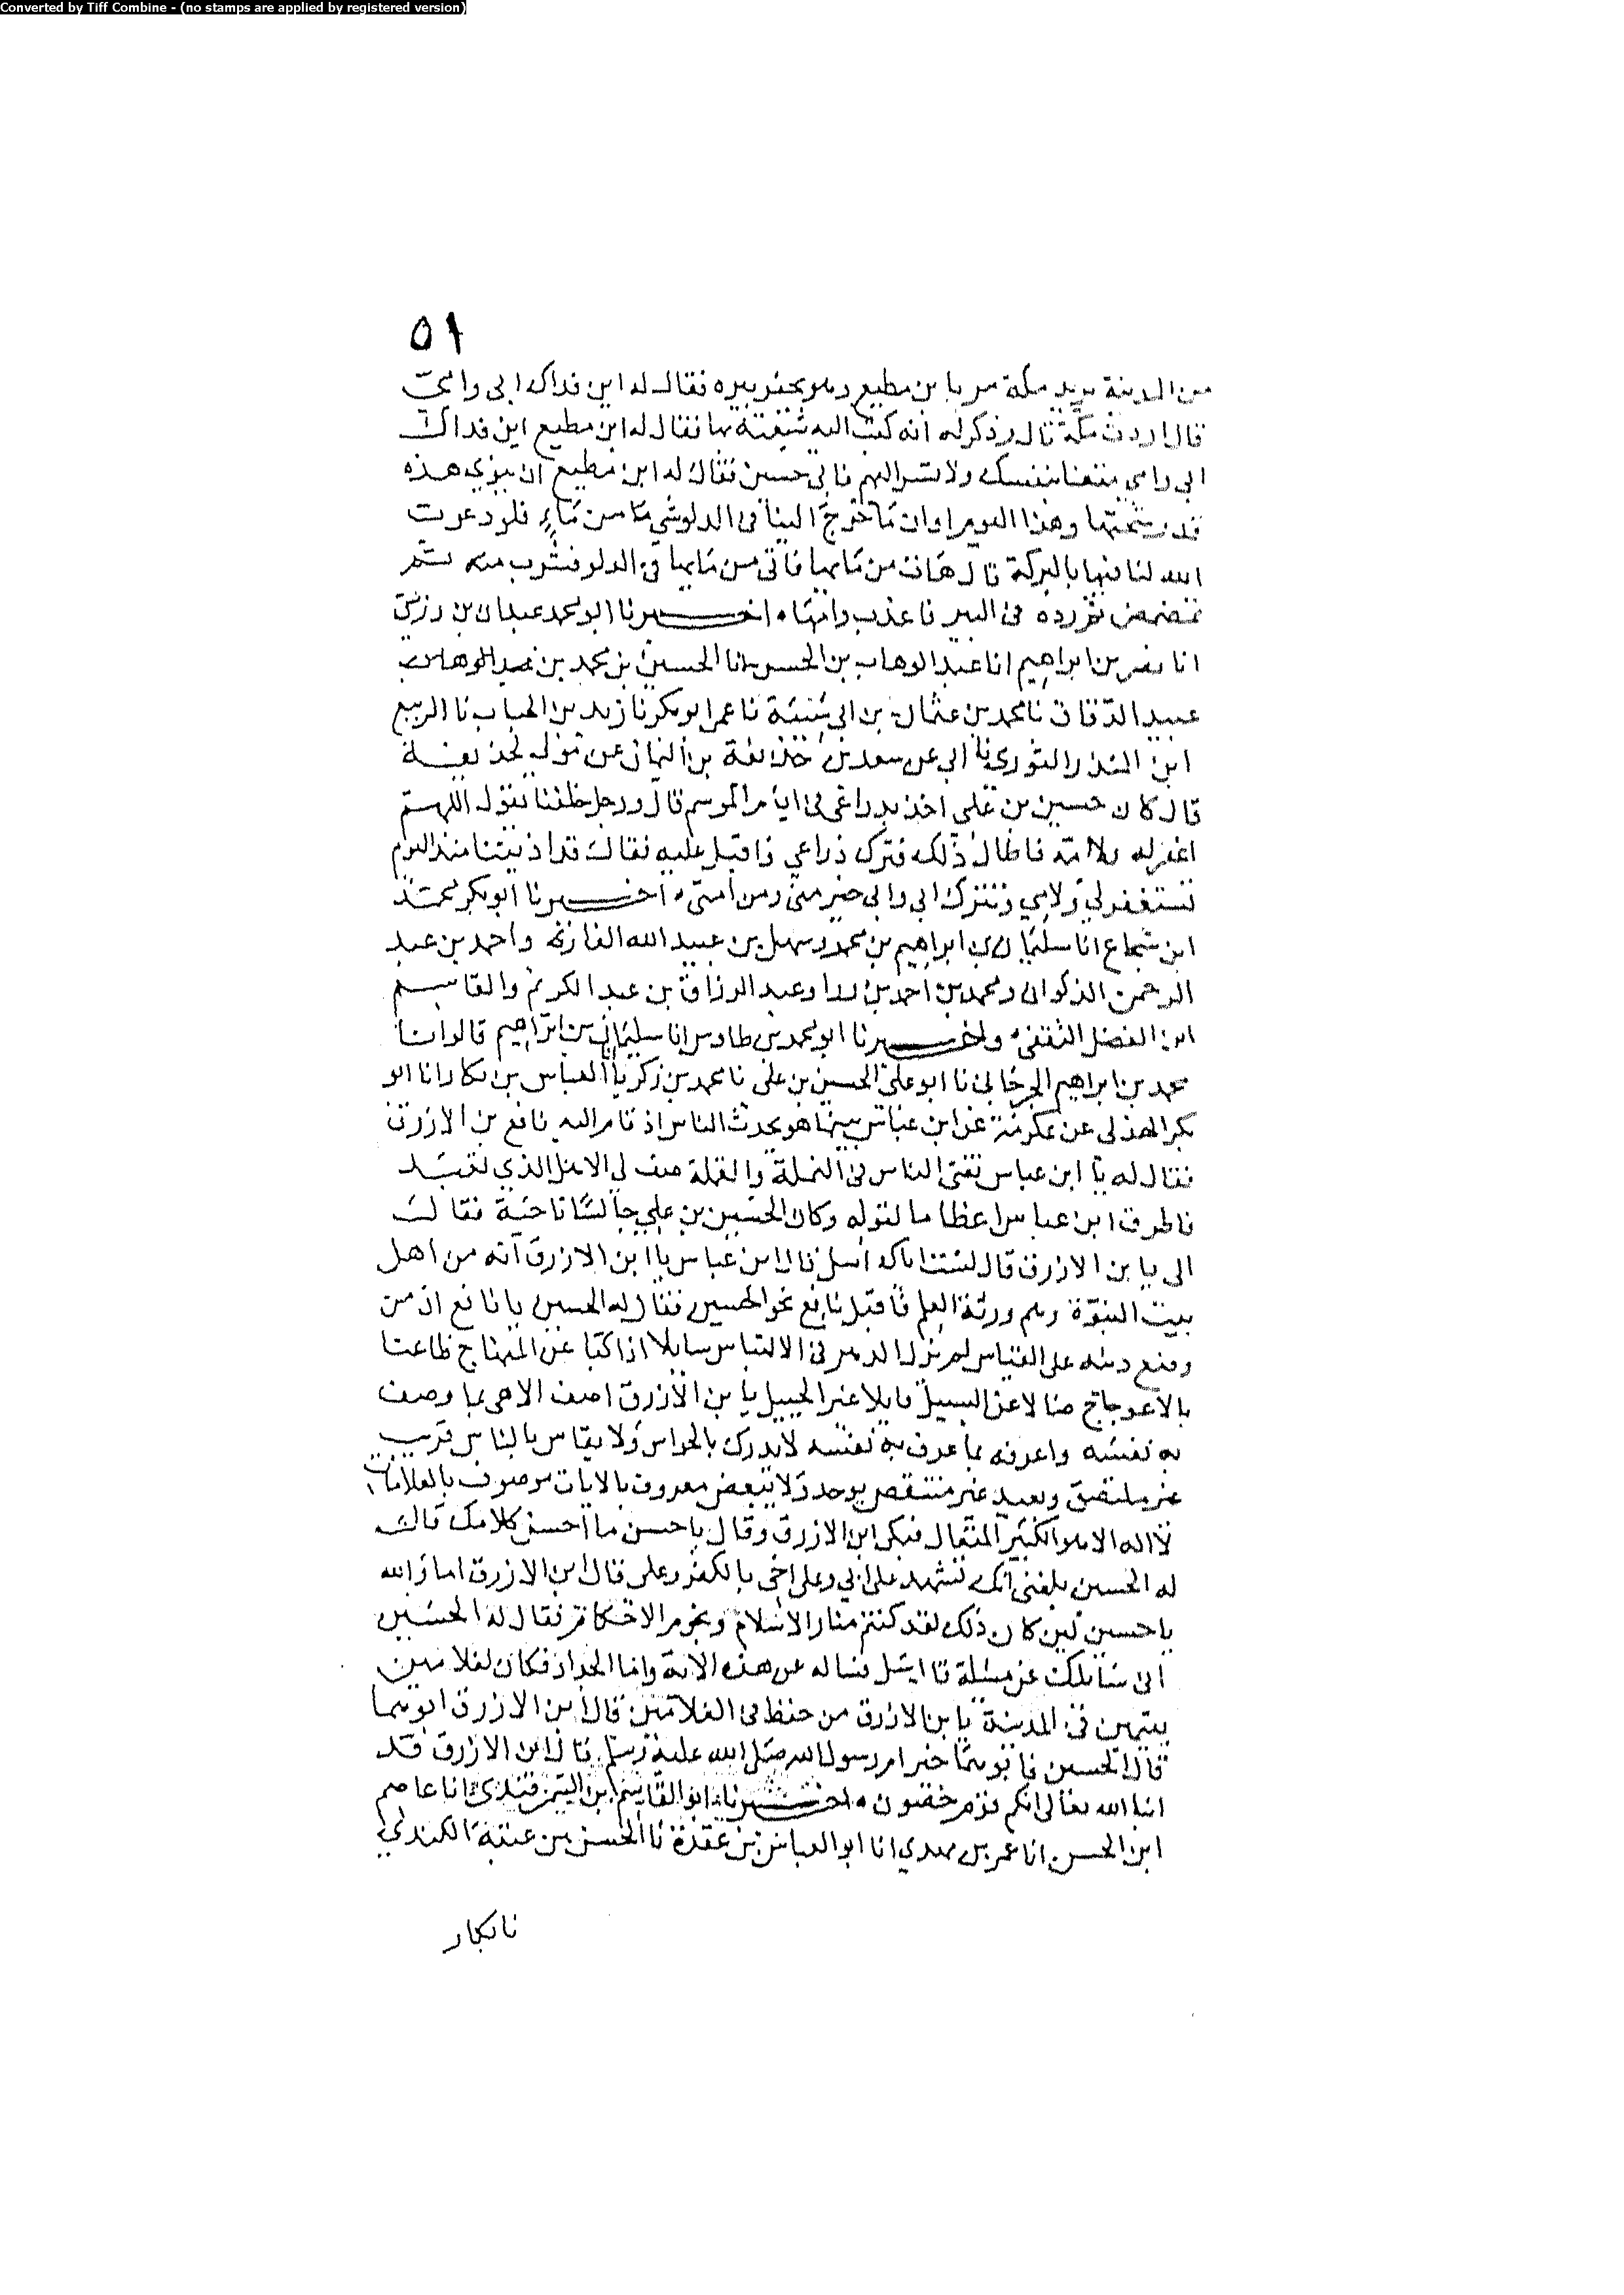 Converted by Tiff Combine - (no stamps are applied by registered version)
٥١
من المدينة يريد مكة مر بابن مطيع وهو يحفر بيره فقال له اين فداك ابي وامي
قال اردت مكة قال وذكر له انه كتب اليه شيعته بها فقال له ابن مطيع اين فداك
ابي وامي متعنا بنفسك ولا تسر اليهم فابى حسين فقال له ابن مطيع ان بيري هذه
قد رشحتها وهذا اليوم اوان ما خرج الينا في الدلو شي ما من ماء فلو دعوت
الله لنا فيها بالبركة قال هات من مايها فاتى من مايها في الدلو فشرب منه ثم
تمضمض ثم رده في البير فاعذب وانهاه اخبرنا ابو محمد عبدان بن رزين
انا نصر بن ابراهيم انا عبد الوهاب بن الحسين انا الحسين بن محمد بن
عبيد الدقاق نا محمد بن عثمان بن ابي شيبة نا عمي ابو بكر نا زيد بن الحباب نا الربيع
ابن المنذر الثوري نا ابي عن سعد بن حذيفة بن اليمان عن مولى لحذيفة
قال كان حسين بن علي اخذ بذراعي في ايام الموسم قال ورجل خلفنا يقول اللهم
اغفر له ولامه فاطال ذلك فترك ذراعي واقبل عليه فقال قد اذيتنا منذ اليوم
تستغفر لي ولامي وتترك ابي وابي خير مني ومن امي اخبرنا ابو بكر محمد
ابن شجاع انا سليمان بن ابراهيم بن محمد وسهل بن عبيد الله الغازي واحمد بن عبد
الرحمن الذكواني ومحمد بن احمد بن ررا وعبد الرزاق بن عبد الكريم والقاسم
ابن الفضل الثقفي واخبرنا ابو محمد بن طاوس انا سليمان بن ابراهيم قالوا نا
محمد بن ابراهيم الجرجاني نا ابو علي الحسين بن علي نا محمد بن زكريا العباس بن بكار انا ابو
بكر الهذلي عن عكرمة عن ابن عباس بينما هو يحدث الناس اذ قام اليه نافع بن الازرق
فقال له يا ابن عباس تفتي الناس في النملة والقملة صف لي الاهك الذي تعبد
فاطرق ابن عباس اعظاما لقوله وكان الحسين بن علي جالسا ناحية فقال
الي يا بن الازرق قال لست اياك اسل قال ابن عباس يا ابن الازرق انه من اهل
بيت النبوة وهم ورثة العلم فاقبل نافع نحو الحسين فقال له الحسين يا نافع ان من
وضع دينه على القياس لم يزل الدهر في الالتباس سايلا اذا كبا عن المنهاج ظاعنا
بالاعوجاج ضالا عن السبيل قايلا غير الجميل يا بن الازرق اصف الاهي بما وصف
به نفسه واعرفه بما عرف به نفسه لا يدرك بالحواس ولا يقاس بالناس قريب
غير ملتصق وبعيد غير منتقص يوحد ولا يتبعض معروف بالايات موصوف بالعلامات
لا اله الا هو الكبير المتعال فبكى ابن الازرق وقال يا حسين ما احسن كلامك قال
له الحسين بلغني انك تشهد على ابي وعلى اخي بالكفر وعلي قال ابن الازرق اما والله
يا حسين لين كان ذلك لقد كنتم منار الاسلام ونجوم الاحكام فقال له الحسين
اني سايلك عن مسلة قال اسل فساله عن هذه الاية واما الجدار فكان لغلامين
يتيمين في المدينة يا بن الازرق من حفظ في الغلامين قال ابن الازرق ابوهما
قال الحسين فابوهما خير ام رسول الله صلى الله عليه وسلم قال ابن الازرق قد
انبا الله تعالى انكم قوم خصمون اخبرنا ابو القاسم ابن السمرقندي انا عاصم
ابن الحسن انا عمر بن مهدي انا ابو العباس بن عقدة نا الحسن بن عتبة الكندي
نا بكار